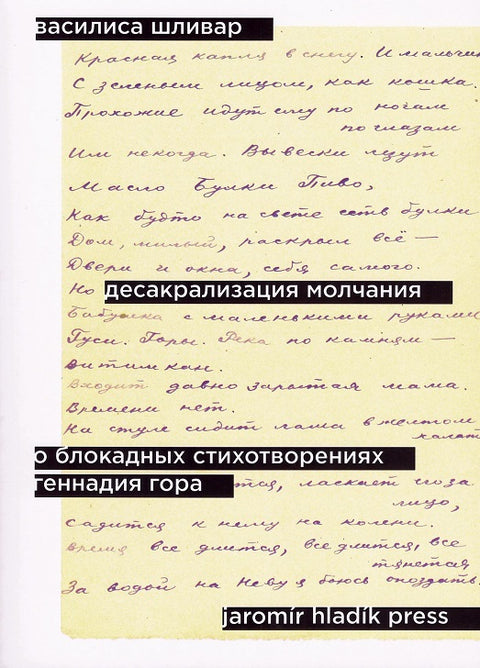 василиса шливар
Красная капля в снегу. И мальчик
С зеленым лицом, как кошка.
Прохожие идут ему по ногам
по глазам
Им некогда. Вывески лезут
Масло Булки Пиво,
Как будто на свете есть булки
Дом, милый, раскрыл всё —
Двери и окна, себя самого.
Но
десакрализация молчания
Бабушка с маленькими руками
Гуси. Горы. Река по камням —
Витимкан.
Входит давно зарытая мама.
Времени нет.
На стуле сидит лама в желтом
халате
о блокадных стихотворениях
геннадия гора
лицо,
Садится к нему на колени.
Время все длится, все длится, все
тянется
За водой на Неву я боюсь опоздать.
jaromír hladík press